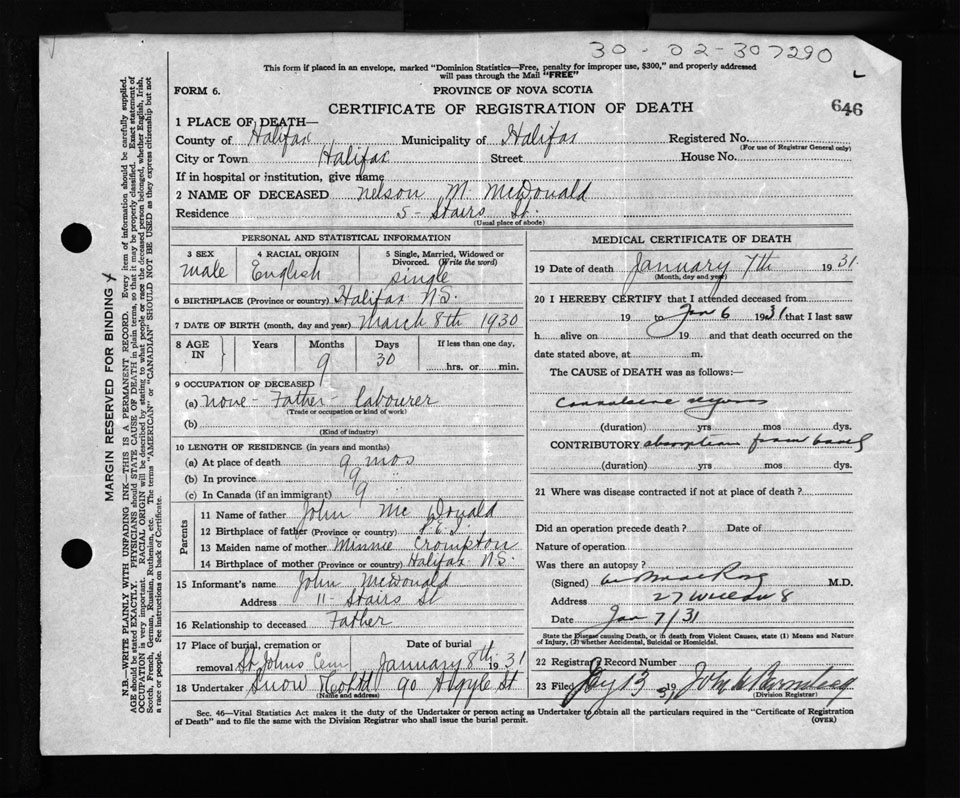 30-02-307290
This form if placed in an envelope, marked "Dominion Statistics—Free, penalty for improper use, $300," and properly addressed
will pass through the Mail "FREE"
FORM 6.
PROVINCE OF NOVA SCOTIA
646
CERTIFICATE OF REGISTRATION OF DEATH
1 PLACE OF DEATH—
County of Halifax Municipality of Halifax Registered No.
(For use of Registrar General only)
City or Town Halifax Street House No.
If in hospital or institution, give name
2 NAME OF DECEASED Nelson M. McDonald
Residence 5 - Stairs St.
(Usual place of abode)
PERSONAL AND STATISTICAL INFORMATION
3 SEX 4 RACIAL ORIGIN 5 Single, Married, Widowed or Divorced. (Write the word)
Male English Single
6 BIRTHPLACE (Province or country) Halifax N.S.
7 DATE OF BIRTH (month, day and year) March 8th 1930
8 AGE IN Years Months Days If less than one day,
9 30 hrs. or min.
9 OCCUPATION OF DECEASED
(a) None - Father - Labourer
(Trade or occupation or kind of work)
(b)
(Kind of industry)
10 LENGTH OF RESIDENCE (in years and months)
(a) At place of death 9 mos
(b) In province 9 "
(c) In Canada (if an immigrant) 9 "
Parents
11 Name of father John McDonald
12 Birthplace of father (Province or country) P.E.I.
13 Maiden name of mother Minnie Crompton
14 Birthplace of mother (Province or country) Halifax N.S.
15 Informant's name John McDonald
Address 11 - Stairs St
16 Relationship to deceased Father
17 Place of burial, cremation or removal St Johns Cem Date of burial January 8th 1931
18 Undertaker Snow & Co Ltd 90 Argyle St
(Name and address)
MEDICAL CERTIFICATE OF DEATH
19 Date of death January 7th 1931.
(Month, day and year)
20 I HEREBY CERTIFY that I attended deceased from
19 to Jan 6 1931 that I last saw
h alive on 19 and that death occurred on the
date stated above, at m.
The CAUSE of DEATH was as follows:
(duration) yrs mos dys.
CONTRIBUTORY absorption from bowel
(duration) yrs mos dys.
21 Where was disease contracted if not at place of death?
Did an operation precede death? Date of
Nature of operation
Was there an autopsy?
(Signed) M.D.
Address 27
Date Jan 7/31
State the Disease causing Death, or in death from Violent Causes, state (1) Means and Nature
of Injury, (2) whether Accidental, Suicidal or Homicidal.
22 Registrar's Record Number
23 Filed 13 1931 John
(Division Registrar)
Sec. 46—Vital Statistics Act makes it the duty of the Undertaker or person acting as Undertaker to obtain all the particulars required in the "Certificate of Registration
of Death" and to file the same with the Division Registrar who shall issue the burial permit. (OVER)
MARGIN RESERVED FOR BINDING
N.B.—WRITE PLAINLY WITH UNFADING INK—THIS IS A PERMANENT RECORD. Every item of information should be carefully supplied.
AGE should be stated EXACTLY. PHYSICIANS should STATE CAUSE OF DEATH in plain terms, so that it may be properly classified. Exact statement of
OCCUPATION is very important. RACIAL ORIGIN will be described by stating to what people or race the deceased person belonged, whether English, Irish,
Scotch, French, German, Russian, Ruthenian, etc. The terms "AMERICAN" or "CANADIAN" SHOULD NOT BE USED as they express citizenship but not
a race or people. See instructions on back of Certificate.